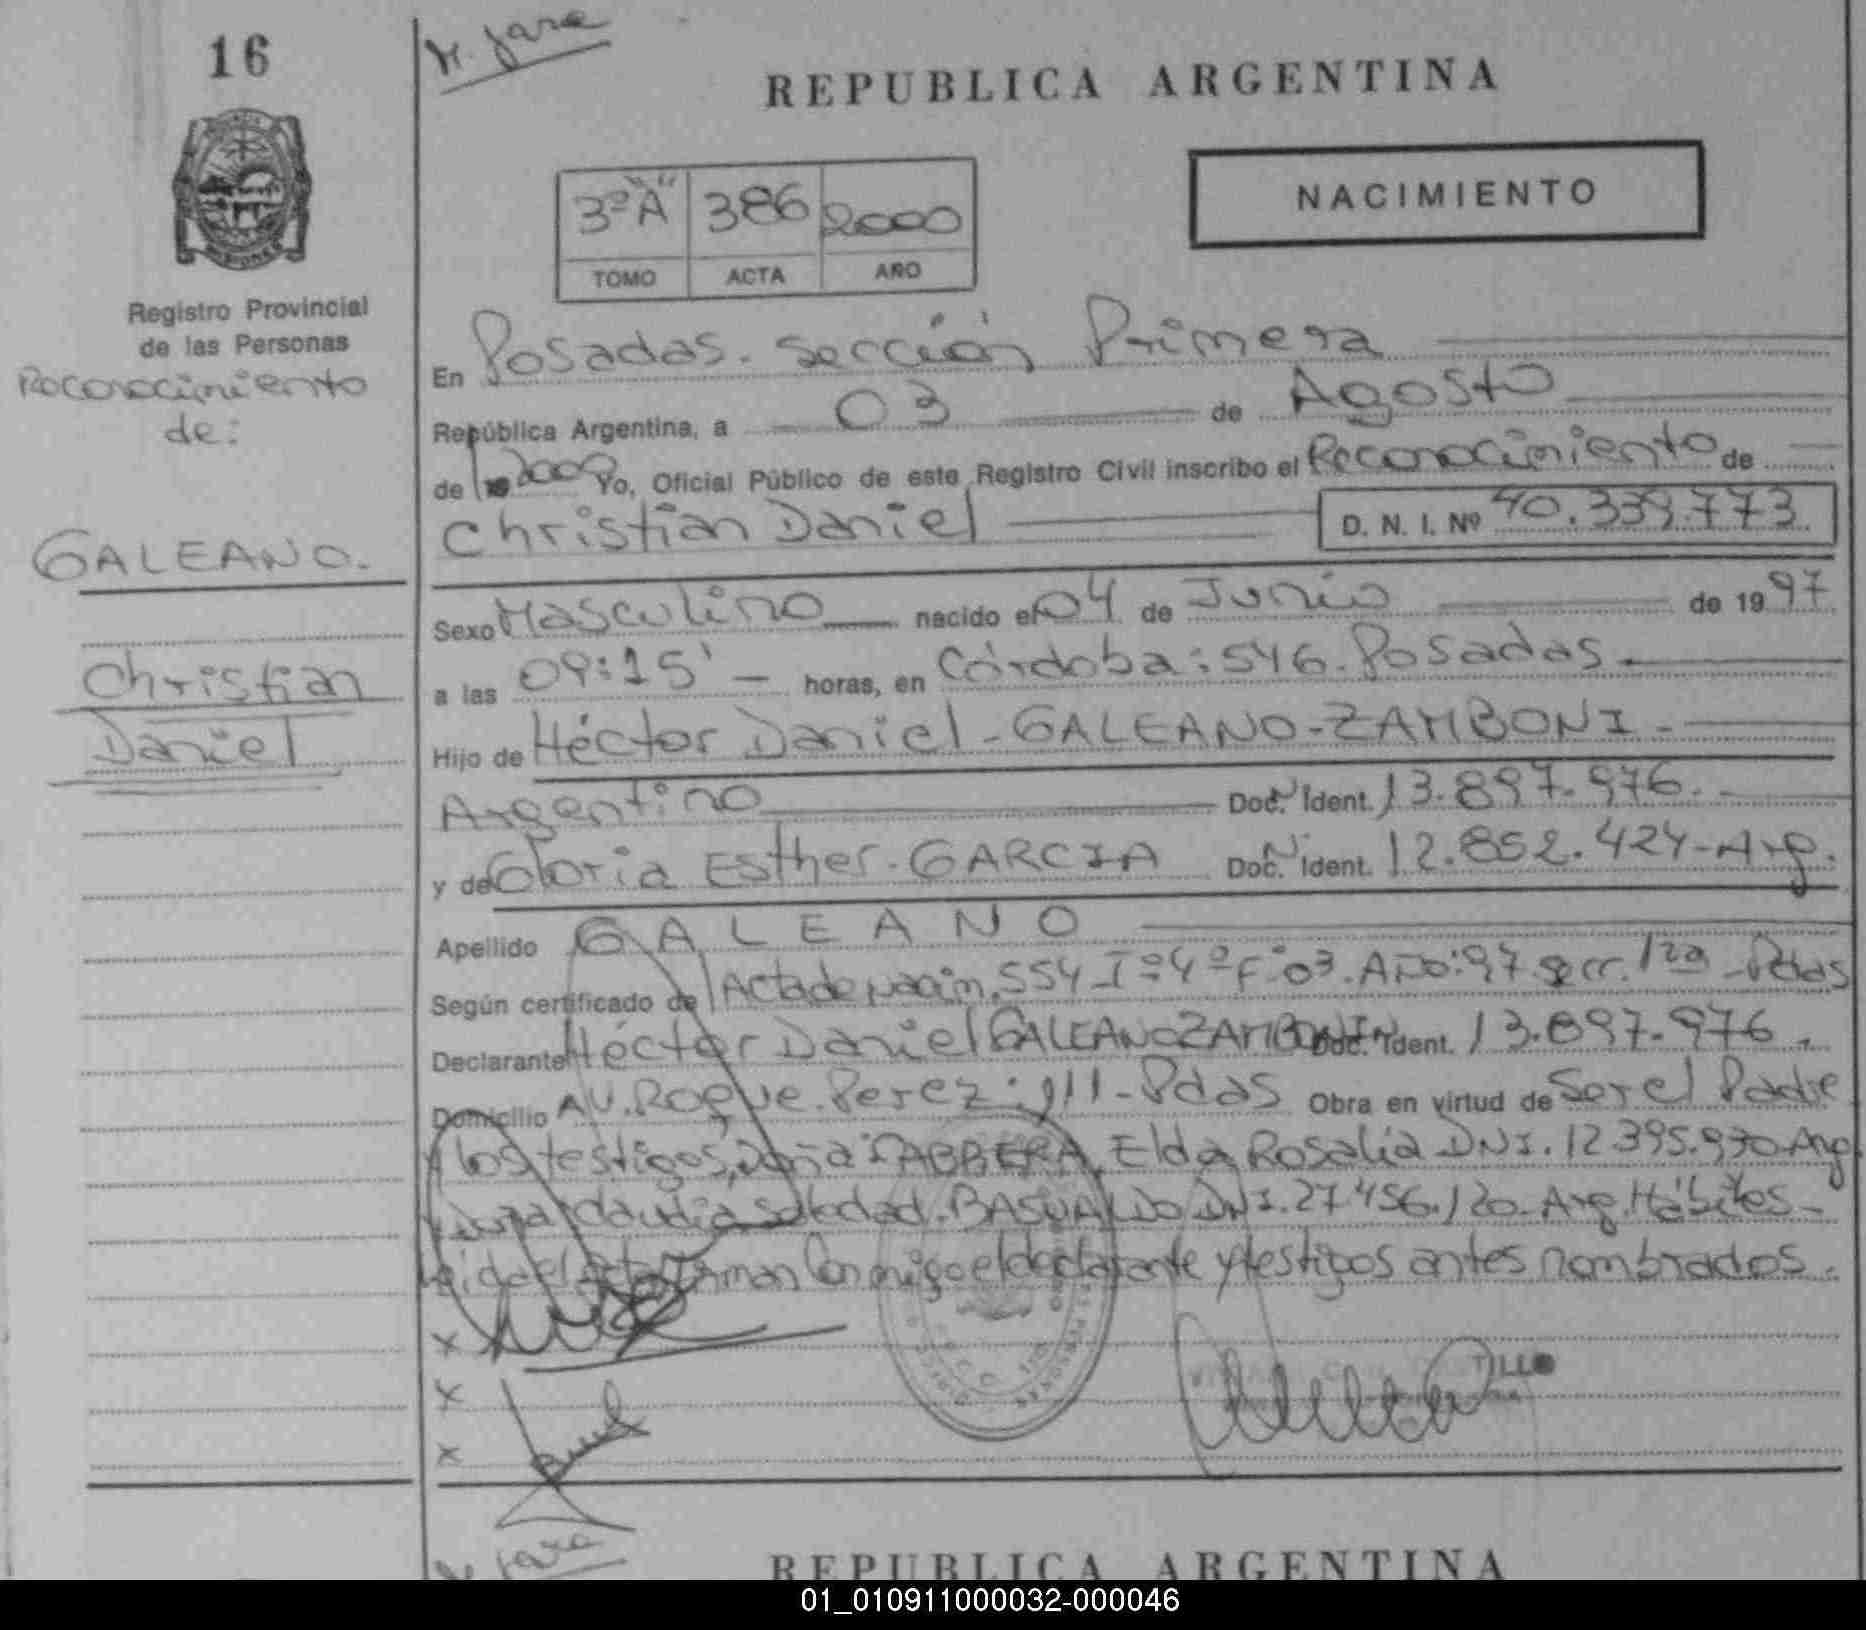 16
H. Jara
REPUBLICA ARGENTINA
3º"A" 386 2000
TOMO ACTA AÑO
NACIMIENTO
Registro Provincial
de las Personas
Reconocimiento
de:
GALEANO.
Christian
Daniel
En Posadas. Sección Primera
República Argentina, a 03 de Agosto
de 2000 Yo, Oficial Público de este Registro Civil inscribo el Reconocimiento de
Christian Daniel D. N. I. Nº 40.339.773
Sexo Masculino nacido el 04 de Junio de 1997
a las 09:15' horas, en Córdoba: 546. Posadas
Hijo de Héctor Daniel - GALEANO - ZAMBONI -
Argentino Doc. N. Ident. 13.897.976.
y de Gloria Esther. GARCIA Doc. N. Ident. 12.852.424-Arg.
Apellido GALEANO
Según certificado de Acta de Nacim. 554 Tº 4º Fº 03. Año: 97 Secc. 1ra - Pdas
Declarante Héctor Daniel GALEANO ZAMBONI Doc. N. Ident. 13.897.976.
Domicilio AV. Roque. Perez: 111 - Pdas Obra en virtud de Ser el Padre
y los testigos, Doña CABRERA, Elda Rosalía DNI. 12.395.930 Arg
y Doña Claudia Soledad. BASUALDO DNI. 27.456.120. Arg. Hábiles -
Leida el acta firman con migo el declarante y testigos antes nombrados.
x
x
x
TILLO
Jara
REPUBLICA ARGENTINA
01_010911000032-000046